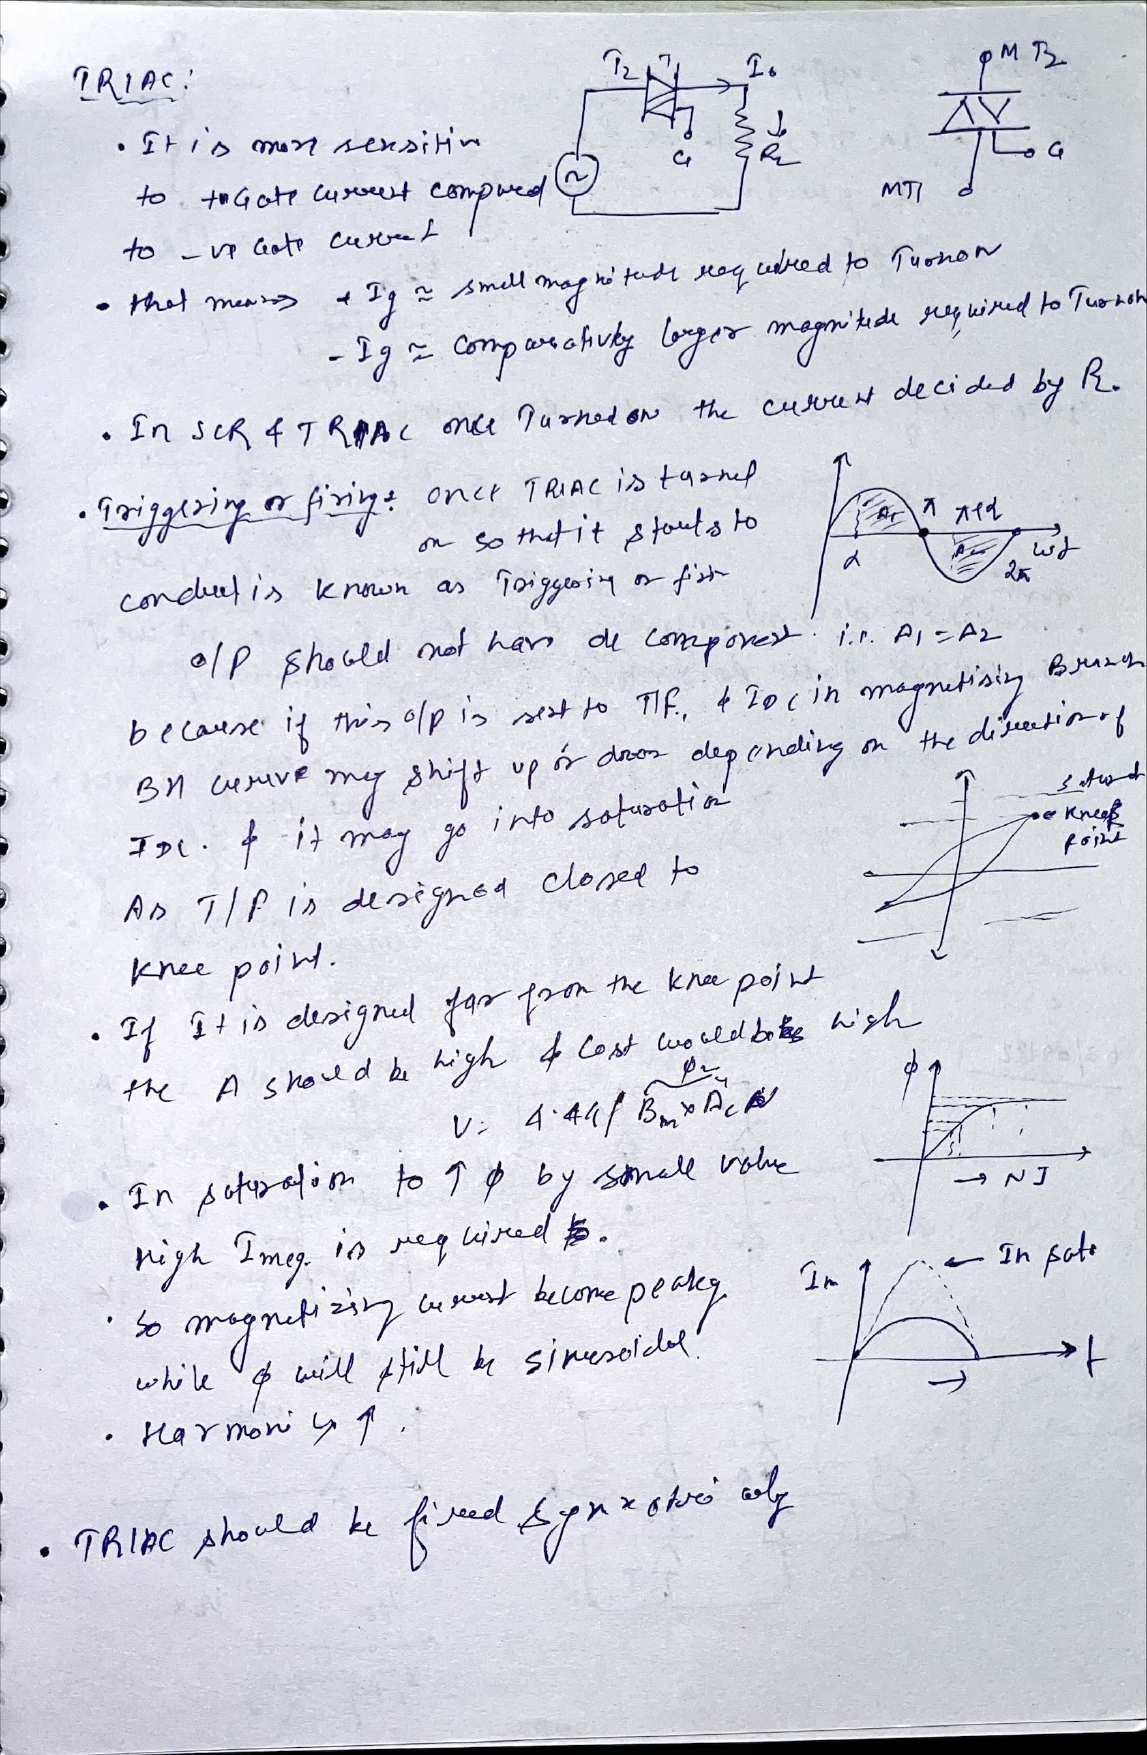 TRIAC:
T2 T1 I0
G
RL
MT2
G
MT1
• It is more sensitive
to +Gate current compared
to -ve Gate current
• that means +Ig ≈ small magnitude required to Turnon
- Ig ≈ comparatively larger magnitude required to Turnon
• In SCR & TRIAC once Turned on the current decided by R.
• Triggering or firing: once TRIAC is turned
on so that it starts to
conduct is known as Triggering or firi
A1 π π+α
α A2 2π ωt
o/p should not have dc component. i.e. A1 = A2
because if this o/p is sent to T/f., & IDC in magnetising Branch
BH curve may shift up or down depending on the direction of
IDC. & it may go into saturation
As T/F is designed closed to
Knee point.
Knee
point
• If It is designed far from the knee point
the A should be high & cost would be high
V = 4.44 f Bm x Ac N
φm
φ
→ NI
• In saturation to ↑ φ by small value
high Imag. is required.
• So magnetizing current become peaky
while φ will still be sinusoidal.
• Harmonics ↑.
Im
← In satu
t
→
• TRIAC should be fired symmetrically